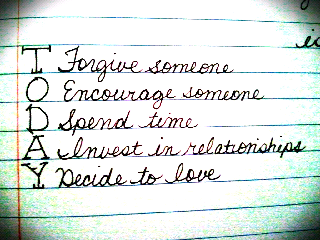 T Forgive someone
O Encourage someone
D Spend time
A Invest in relationships
Y Decide to love